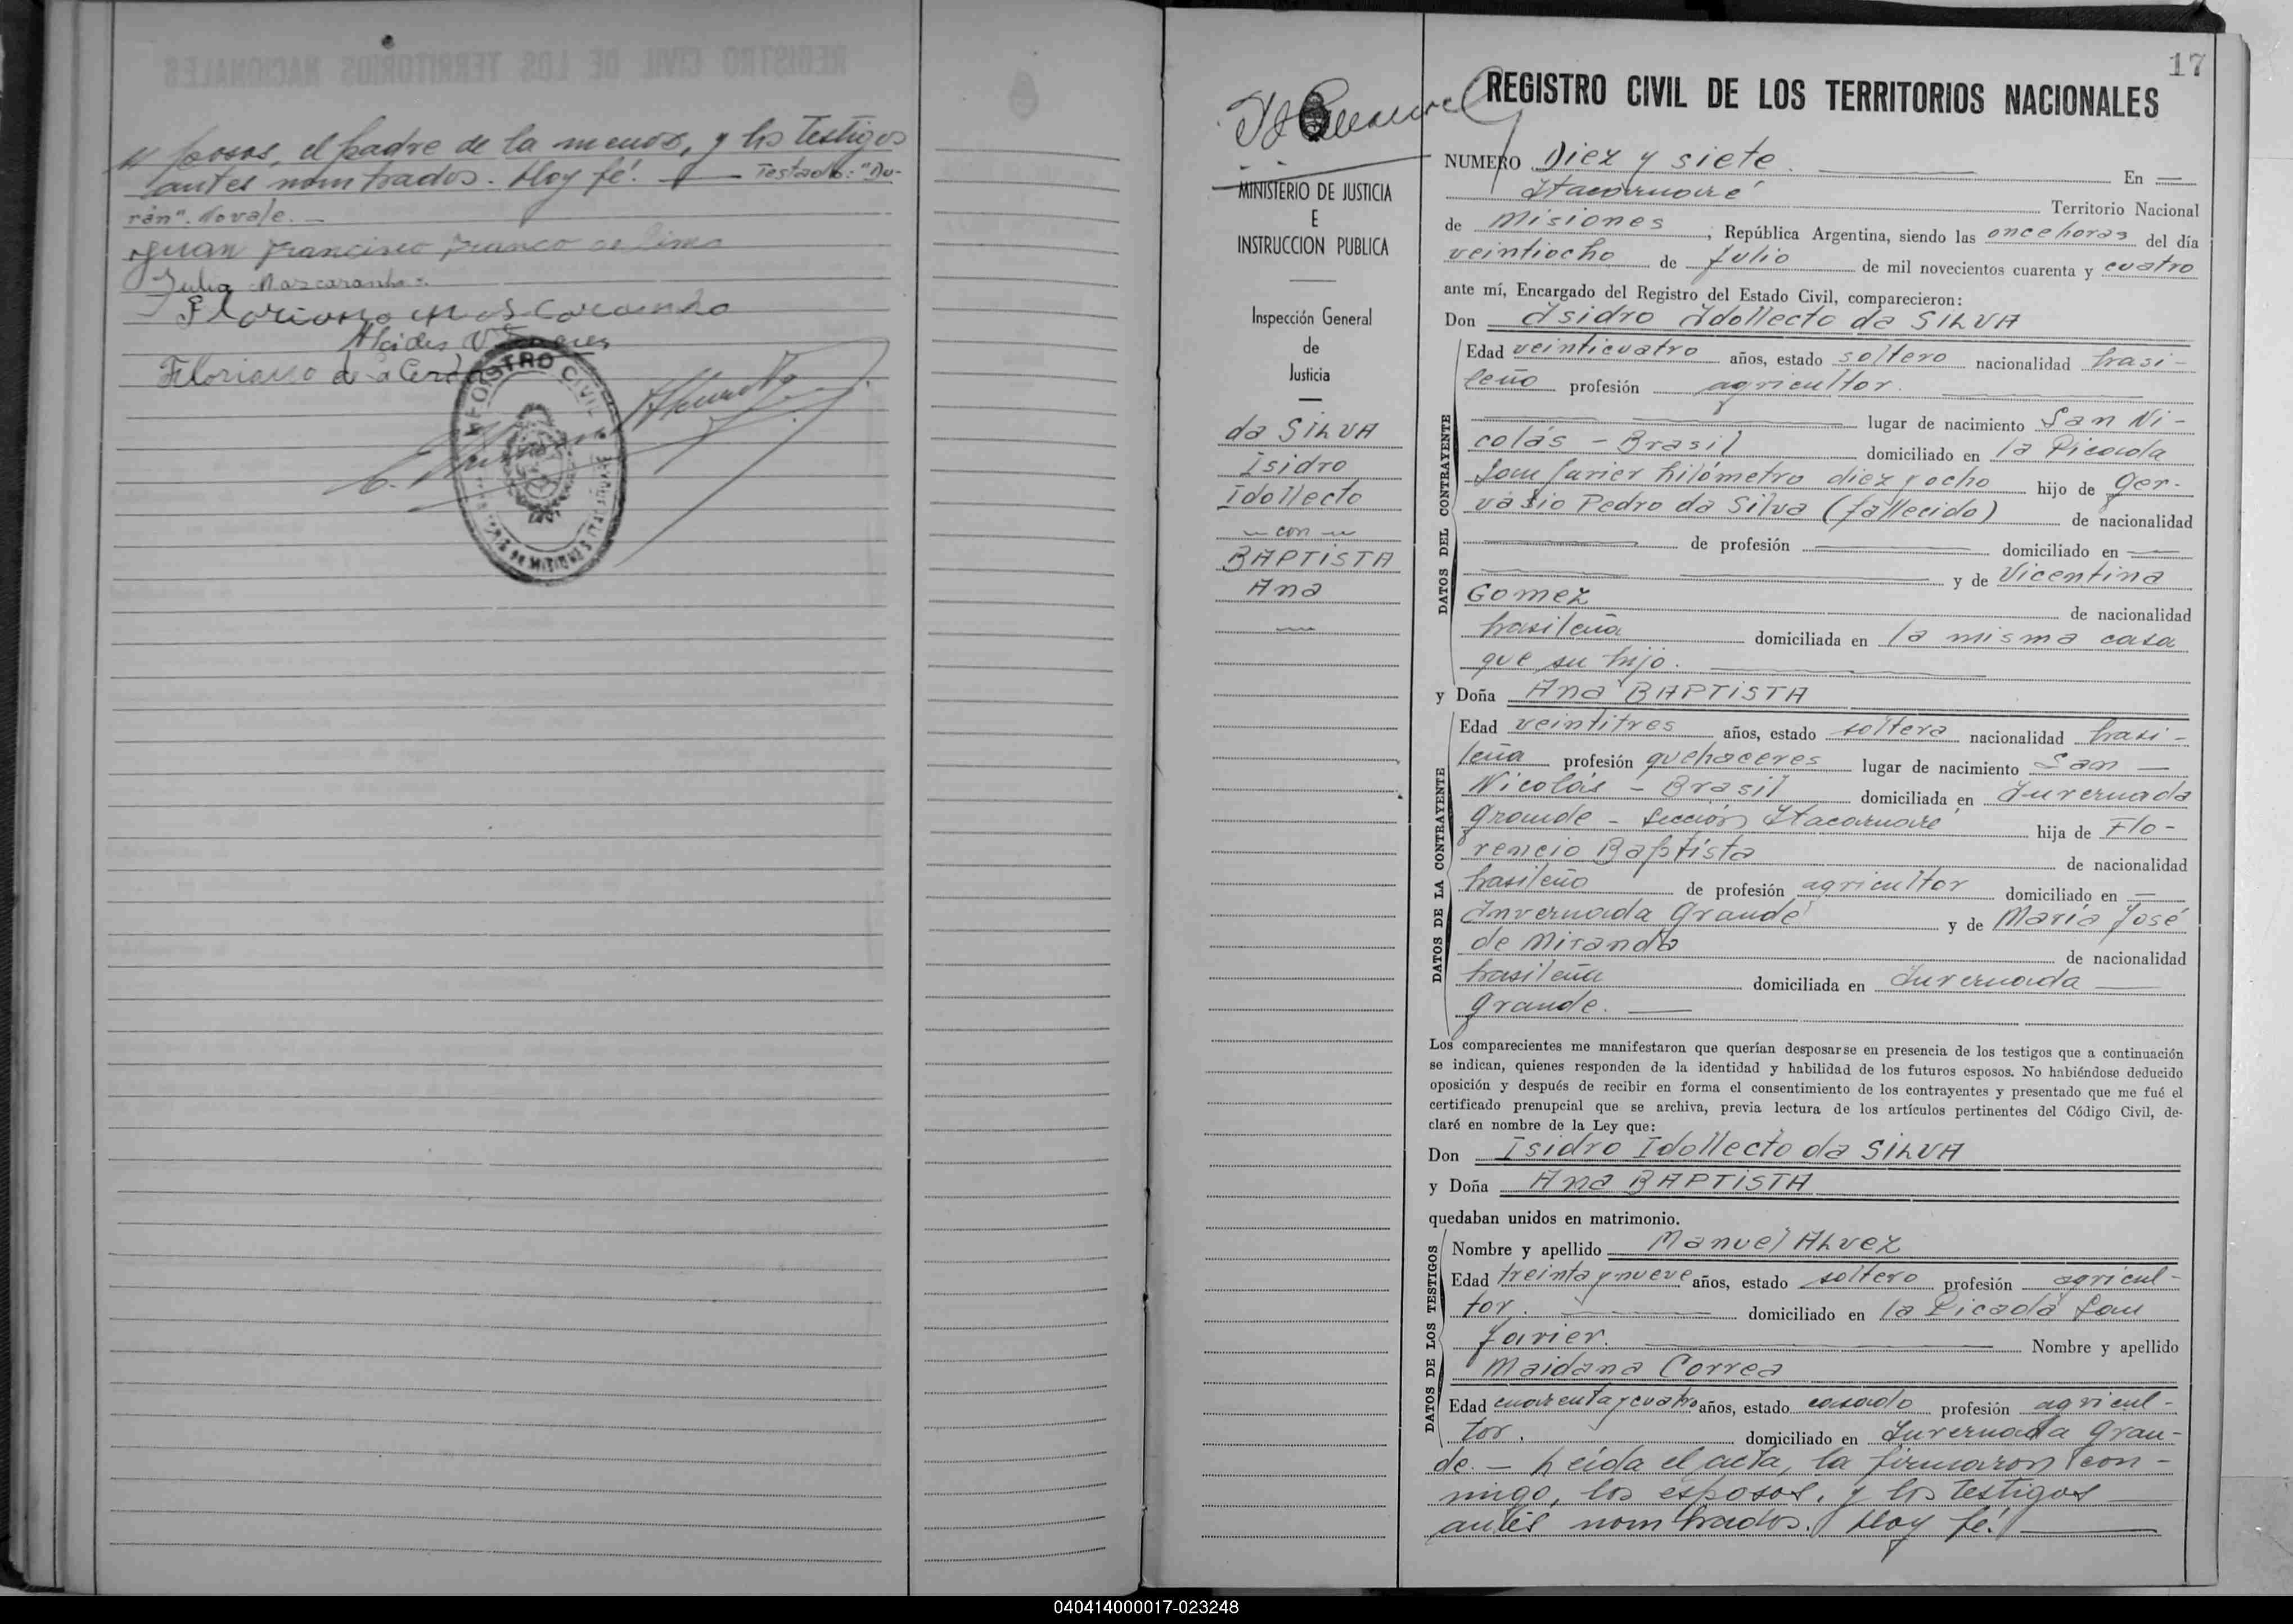 // posos, el padre de la menor, y los testigos
antes nombrados. Doy fé. — Testado: "Du-
rán". No vale. —
Juan Francisco Franco de Lima
Julia Marcaranha
Floriano
Alcides
Floriano de
REGISTRO CIVIL
17
REGISTRO CIVIL DE LOS TERRITORIOS NACIONALES
MINISTERIO DE JUSTICIA
E
INSTRUCCION PUBLICA
Inspección General
de
Justicia
da SILVA
Isidro
Idollecto
— con —
BAPTISTA
Ana
NUMERO Diez y siete. En
Itacaruaré Territorio Nacional
de Misiones, República Argentina, siendo las once horas del día
veintiocho de Julio de mil novecientos cuarenta y cuatro
ante mí, Encargado del Registro del Estado Civil, comparecieron:
Don Isidro Idollecto da SILVA
DATOS DEL CONTRAYENTE
Edad veinticuatro años, estado soltero nacionalidad brasi-
leño profesión agricultor.
lugar de nacimiento San Ni-
colás - Brasil domiciliado en la Picada
San Javier kilómetro diez y ocho hijo de Ger-
vásio Pedro da Silva (fallecido) de nacionalidad
de profesión domiciliado en
y de Vicentina
Gomez de nacionalidad
brasileña domiciliada en la misma casa
que su hijo.
y Doña Ana BAPTISTA
DATOS DE LA CONTRAYENTE
Edad veintitres años, estado soltera nacionalidad brasi-
leña profesión quehaceres lugar de nacimiento San
Nicolás - Brasil domiciliada en Invernada
Grande - Sección Itacaruaré hija de Flo-
rencio Baptista de nacionalidad
brasileño de profesión agricultor domiciliado en
Invernada Grande y de María José
de Miranda de nacionalidad
brasileña domiciliada en Invernada
Grande.
Los comparecientes me manifestaron que querían desposarse en presencia de los testigos que a continuación
se indican, quienes responden de la identidad y habilidad de los futuros esposos. No habiéndose deducido
oposición y después de recibir en forma el consentimiento de los contrayentes y presentado que me fué el
certificado prenupcial que se archiva, previa lectura de los artículos pertinentes del Código Civil, de-
claré en nombre de la Ley que:
Don Isidro Idollecto da SILVA
y Doña Ana BAPTISTA
quedaban unidos en matrimonio.
DATOS DE LOS TESTIGOS
Nombre y apellido Manuel ALVEZ
Edad treinta y nueve años, estado soltero profesión agricul-
tor. domiciliado en la Picada San
Javier. Nombre y apellido
Maidana Correa
Edad cuarenta y cuatro años, estado casado profesión agricul-
tor. domiciliado en Invernada Gran-
de. — Leída el acta, la firmaron con-
migo, los esposos, y los testigos
antes nombrados. Doy fé.
040414000017-023248